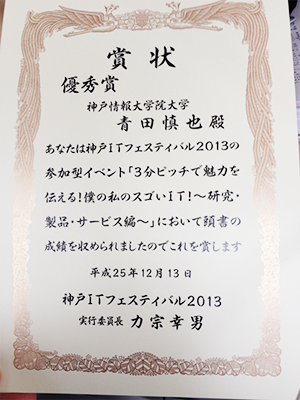 賞状
優秀賞
神戸情報大学院大学
青田慎也殿
あなたは神戸ITフェスティバル2013の
参加型イベント「3分ピッチで魅力を
伝える!僕の私のスゴいIT!〜研究・
製品・サービス編〜」において頭書の
成績を収められましたのでこれを賞します
平成25年12月13日
神戸ITフェスティバル2013
実行委員長 力宗幸男